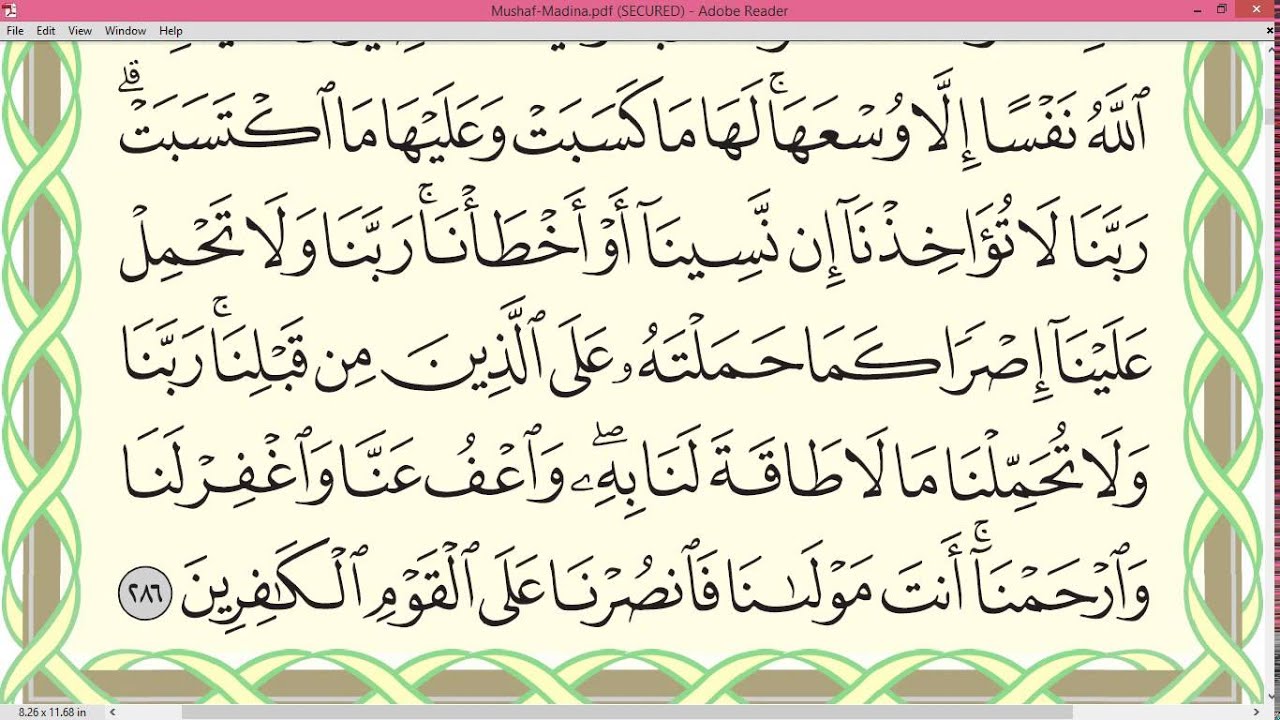 Mushaf-Madina.pdf (SECURED) - Adobe Reader
File Edit View Window Help
ٱللَّهُ نَفْسًا إِلَّا وُسْعَهَاۚ لَهَا مَا كَسَبَتْ وَعَلَيْهَا مَا ٱكْتَسَبَتْۗ
رَبَّنَا لَا تُؤَاخِذْنَآ إِن نَّسِينَآ أَوْ أَخْطَأْنَاۚ رَبَّنَا وَلَا تَحْمِلْ
عَلَيْنَآ إِصْرًا كَمَا حَمَلْتَهُۥ عَلَى ٱلَّذِينَ مِن قَبْلِنَاۚ رَبَّنَا
وَلَا تُحَمِّلْنَا مَا لَا طَاقَةَ لَنَا بِهِۦۖ وَٱعْفُ عَنَّا وَٱغْفِرْ لَنَا
وَٱرْحَمْنَآۚ أَنتَ مَوْلَىٰنَا فَٱنصُرْنَا عَلَى ٱلْقَوْمِ ٱلْكَٰفِرِينَ ٢٨٦
8.26 x 11.68 in